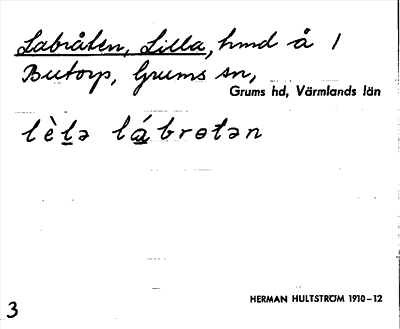 Labråten, Lilla, hmd å 1
Butorp, Grums sn,
Grums hd, Värmlands län
lèlə lábrɵtən
HERMAN HULTSTRÖM 1910–12
3